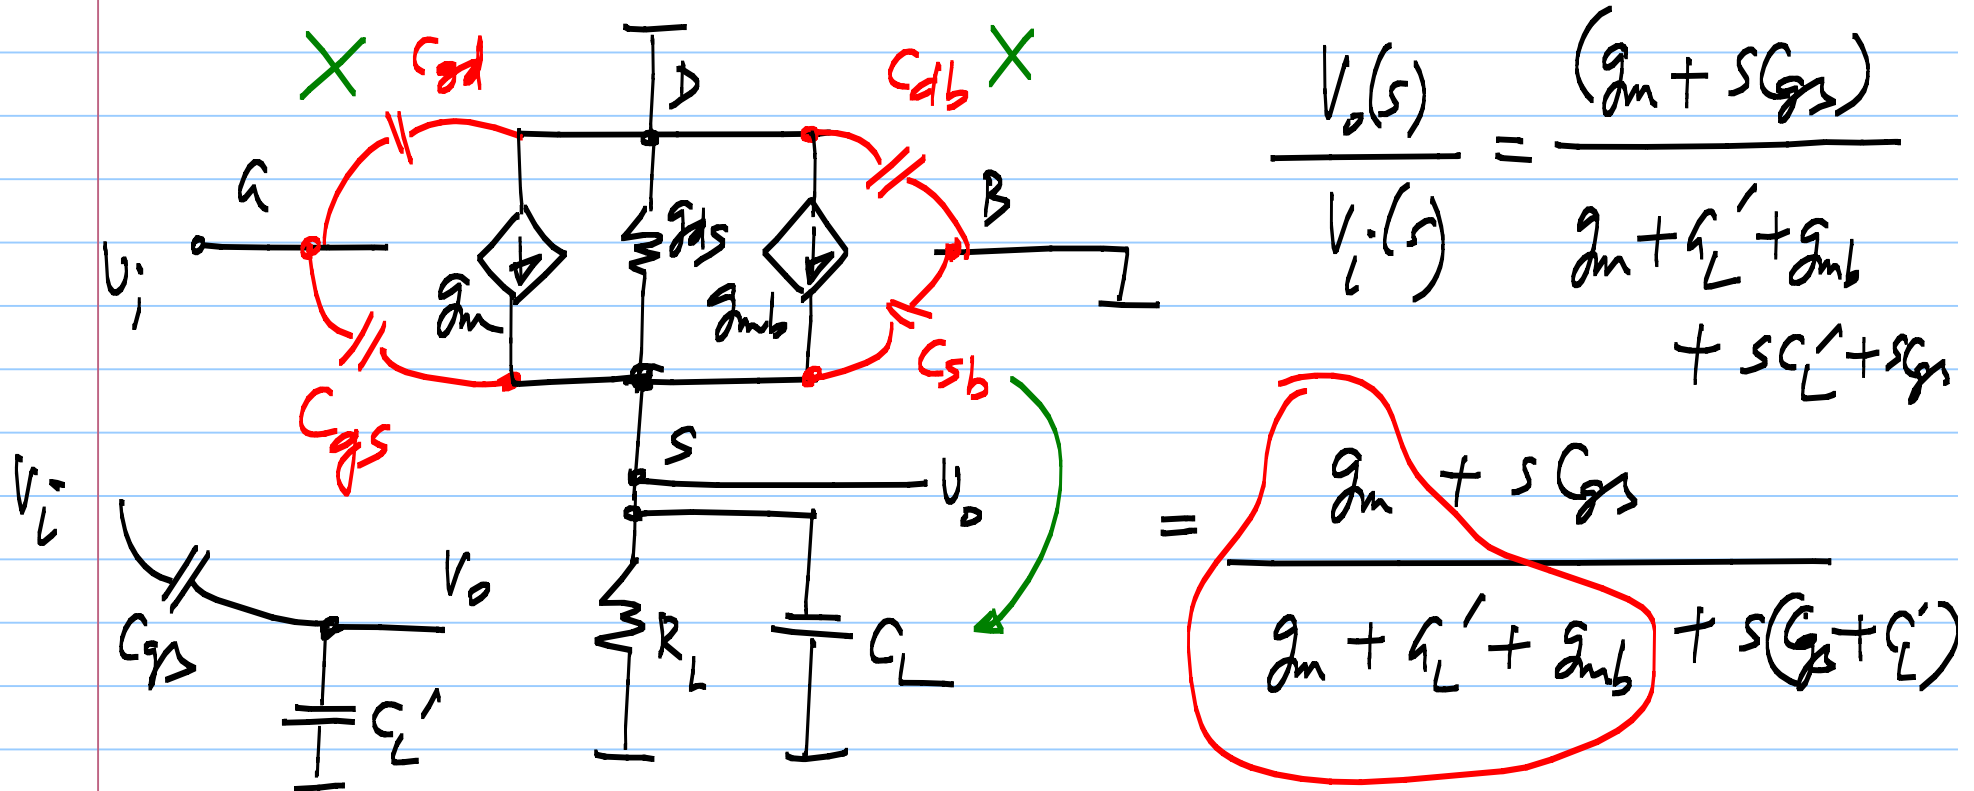 C_gd
D
C_db
G
B
V_i
g_m
g_ds
g_mb
C_gs
C_sb
S
V_o
R_L
C_L
V_i
C_gs
V_o
C_L'
V_o(s) / V_i(s) = (g_m + sC_gs) / g_m + G_L' + g_mb
+ sC_L' + sC_gs
= g_m + sC_gs / g_m + G_L' + g_mb + s(C_gs + C_L')